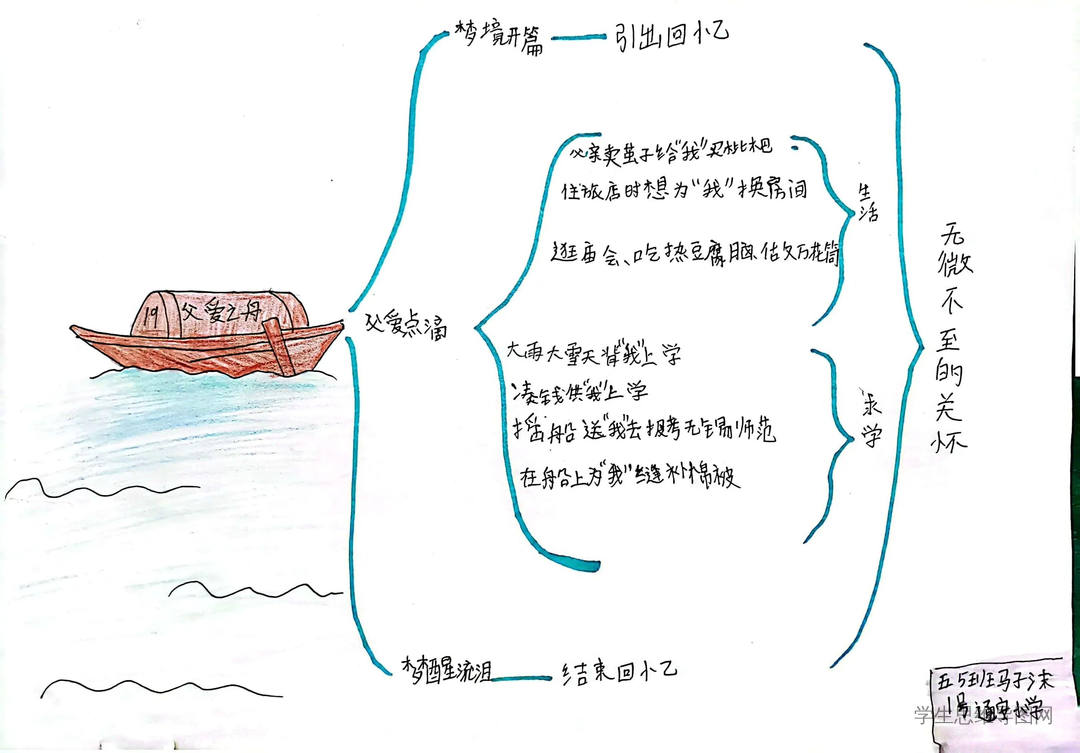 梦境开篇 引出回忆
父亲卖茧子给“我”买枇杷
住旅店时想为“我”换房间
逛庙会、吃热豆腐脑、做万花筒
生活
19 父爱之舟
父爱点滴
无微不至的关怀
大雨大雪天背“我”上学
凑钱供“我”上学
摇船送“我”去报考无锡师范
在船上为“我”缝补棉被
求学
梦醒流泪 结束回忆
五5班马子沫
1号 通安小学
学生思维导图网